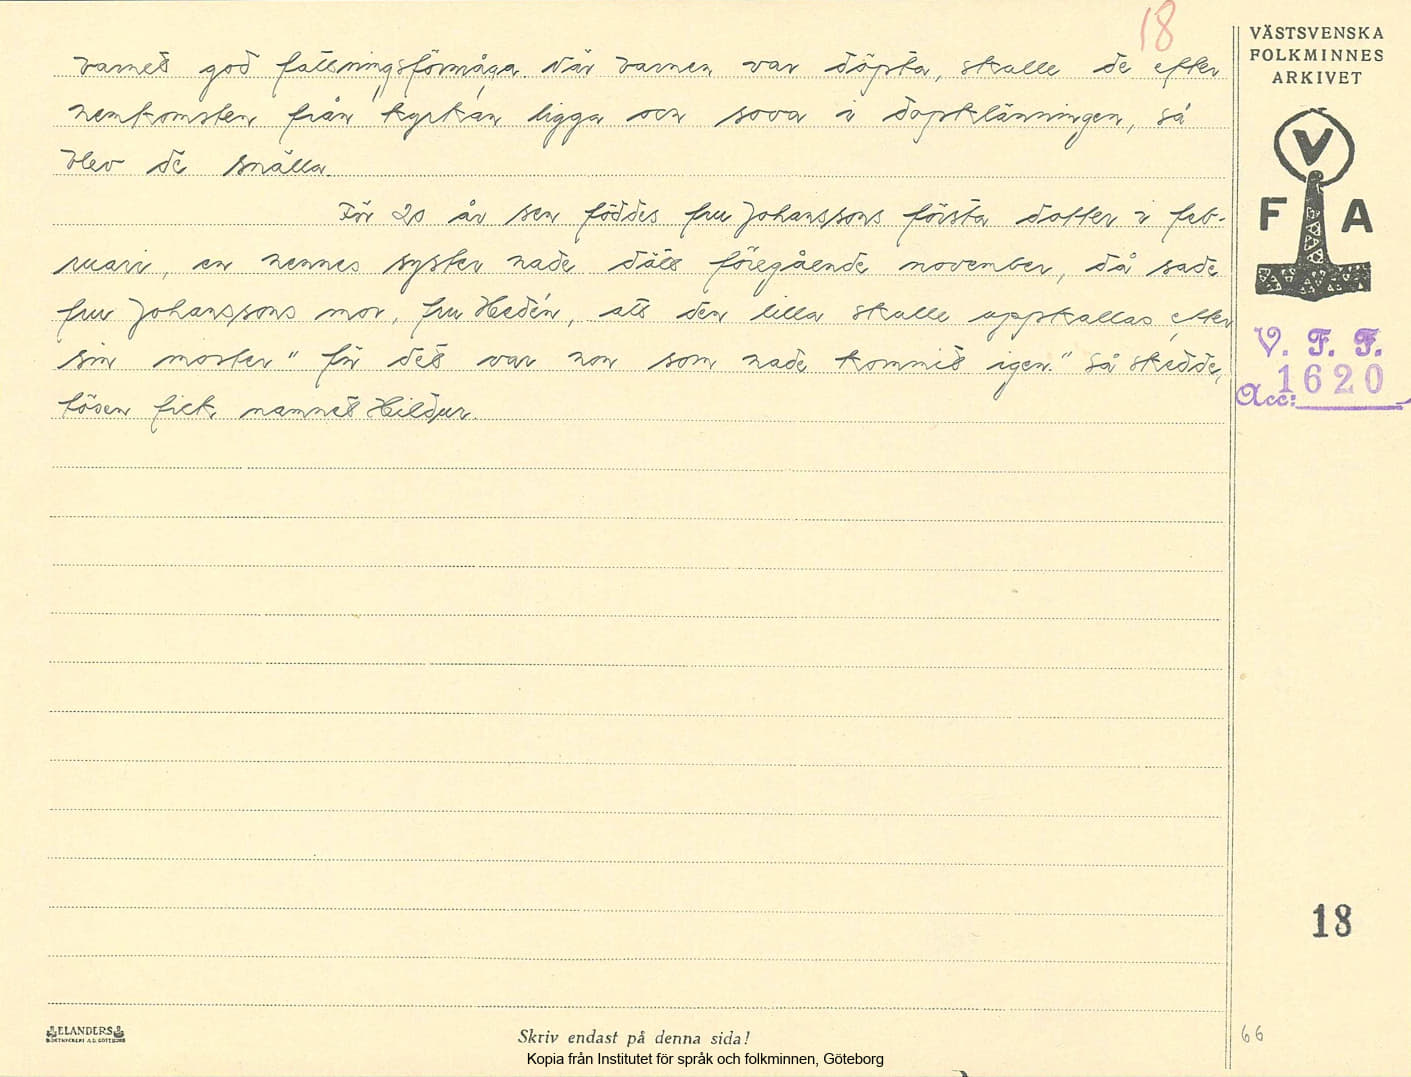 18
barnet god fattningsförmåga. När barnen var döpta, skulle de efter
hemkomsten från kyrkan ligga och sova i dopklänningen, så
blev de snälla.
För 20 år sen föddes fru Johanssons första dotter i feb-
ruari, en hennes syster hade dött föregående november, då sade
fru Johanssons mor, fru Hedén, att den lilla skulle uppkallas efter
sin moster "för det var hon som hade kommit igen." Så skedde,
tösen fick namnet Hildur.
VÄSTSVENSKA
FOLKMINNES
ARKIVET
V
F A
V. F. F.
Acc: 1620
18
66
ELANDERS
Skriv endast på denna sida!
Kopia från Institutet för språk och folkminnen, Göteborg